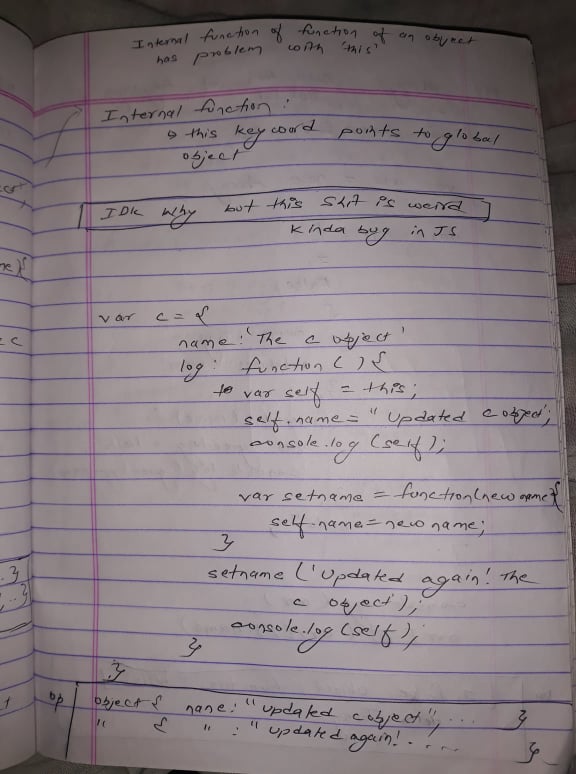 Internal function of function of an object
has problem with 'this'
Internal function :
↳ this keyword points to global
object
IDK why but this shit is weird
kinda bug in JS
var c = {
name : 'The c object'
log : function ( ) {
var self = this;
self.name = "Updated c object';
console.log (self);
var setname = function(newname){
self.name = newname;
}
setname ('Updated again! The
c object');
console.log (self);
}
}
op
object { name: "updated cobject", ... }
" { " : "updated again! ....
}